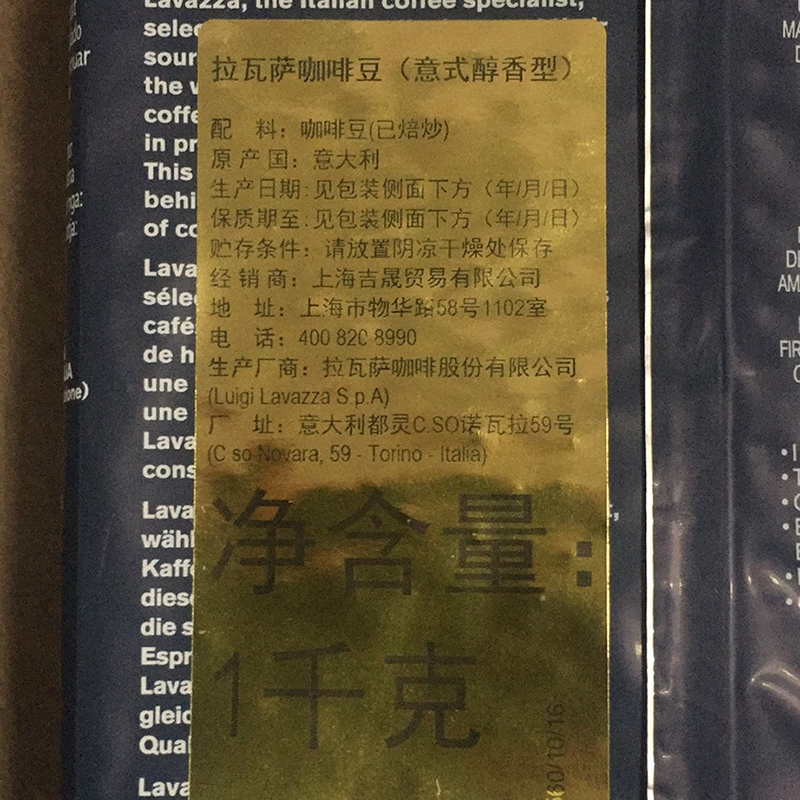 Lavazza, the Italian coffee specialist,
selec
sour
the w
coffe
in pr
This
behi
of co
Lava
sélec
café
de h
une
une
Lava
cons
Lava
wähl
Kaff
diese
die s
Espr
Lava
gleic
Qual
Lava
拉瓦萨咖啡豆（意式醇香型）
配 料：咖啡豆(已焙炒)
原 产 国：意大利
生产日期:见包装侧面下方（年/月/日）
保质期至:见包装侧面下方（年/月/日）
贮存条件：请放置阴凉干燥处保存
经 销 商：上海吉晟贸易有限公司
地 址：上海市物华路58号1102室
电 话：400 820 8990
生产厂商：拉瓦萨咖啡股份有限公司
(Luigi Lavazza S.p.A)
厂 址：意大利都灵C.SO诺瓦拉59号
(C so Novara, 59 - Torino - Italia)
净含量：
1千克
60/10/16